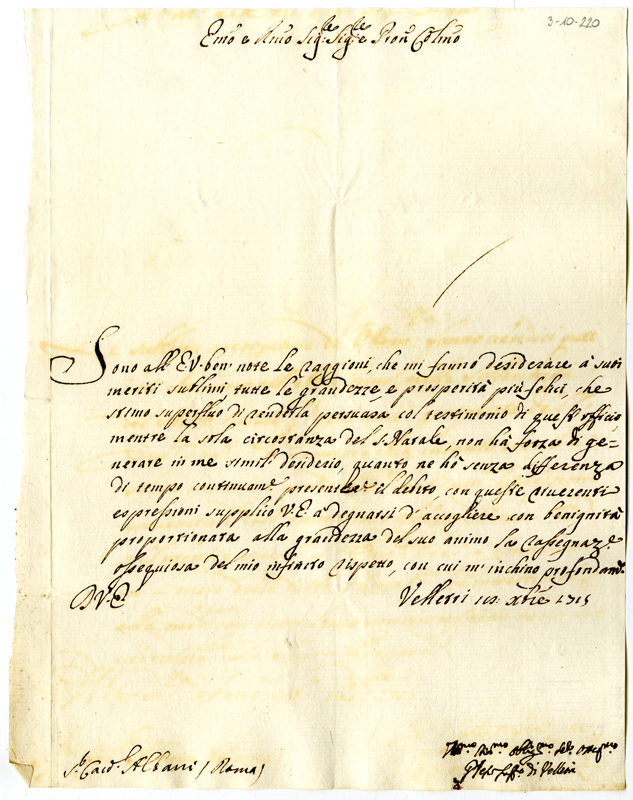 3-10-220
Emo e Rmo Sigre Sigre e Pron Colmo
Sono all' E.V. ben note le raggioni, che mi fanno desiderare à suoi
meriti sublimi tutte le grandezze, e prosperità più felici, che
stimo superfluo di renderla persuasa col testimonio di quest' officio
mentre la sola circostanza del S. Natale, non hà forza di ge-
nerare in me simil desiderio, quanto ne hò senza differenza
di tempo continuame. presente il debito, con queste riverenti
espressioni supplico V.E. à degnarsi di accogliere con benignità
proporzionata alla grandezza del suo animo la rassegnaze.
ossequiosa del mio infinito rispetto, con cui m' inchino profondame.
D V.E. Velletri xbre 1715
Sr. Card. Albani (Roma)
Hmo. mo. obligmo.
di Velletri